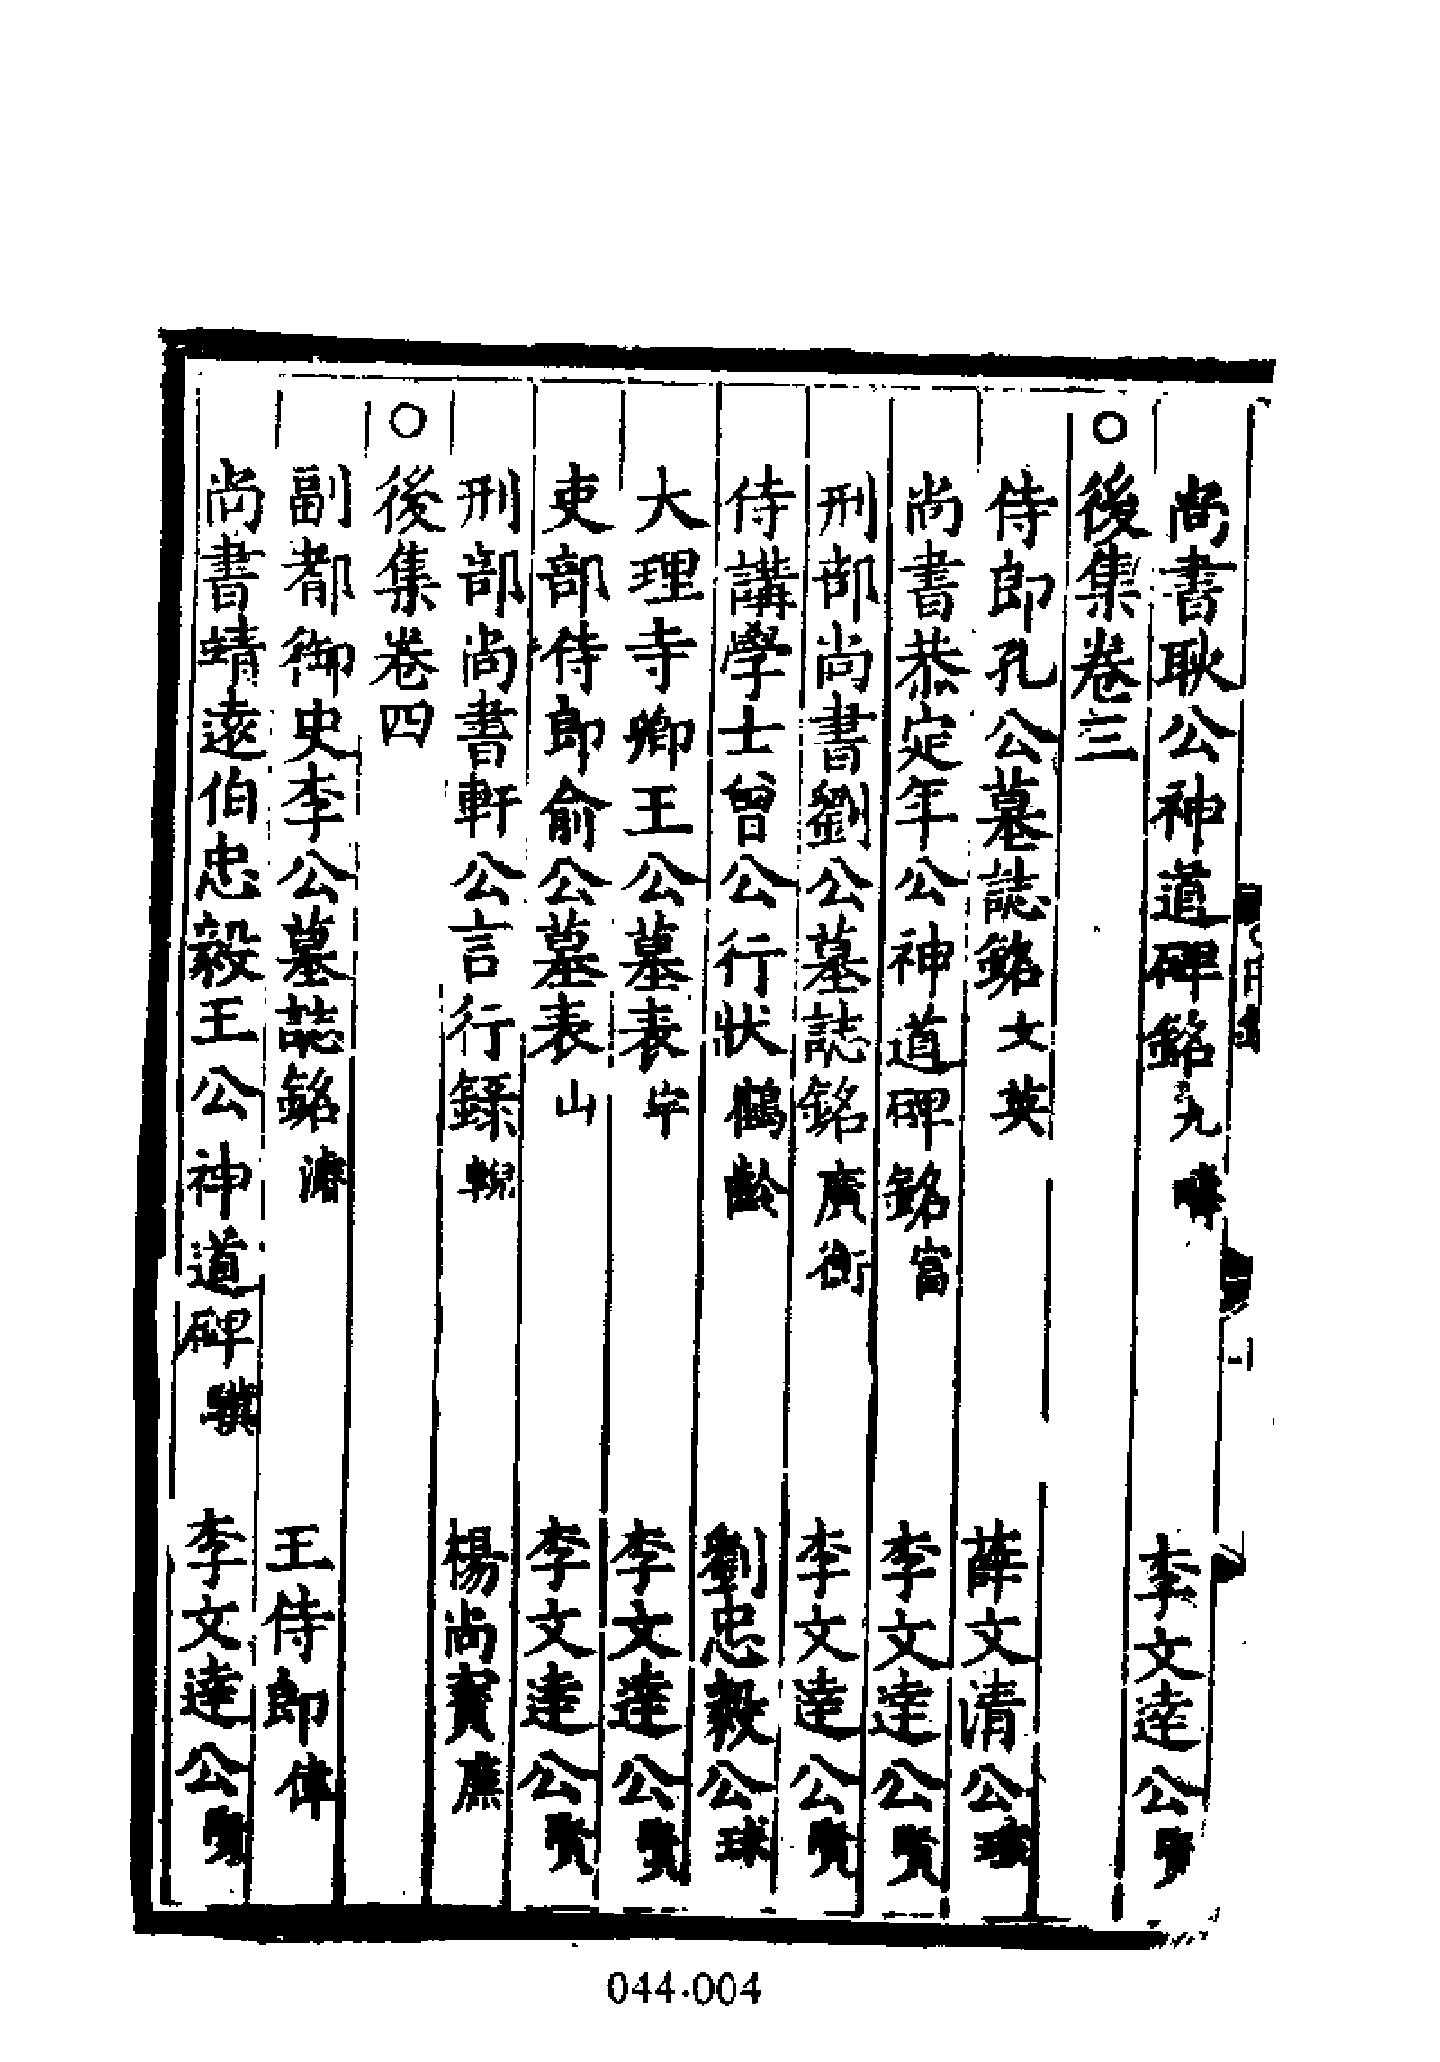 尚書耿公神道碑銘九疇　李文達公賢
○後集卷三
侍郎孔公墓誌銘文英　薛文清公瑄
尚書恭定年公神道碑銘富　李文達公賢
刑部尚書劉公墓誌銘廣衡　李文達公賢
侍講學士曾公行狀鶴齡　劉忠毅公球
大理寺卿王公墓表　李文達公賢
吏部侍郎俞公墓表山　李文達公賢
刑部尚書軒公言行錄輗　楊尚寶廉
○後集卷四
副都御史李公墓誌銘濬　王侍郎偉
尚書靖遠伯忠毅王公神道碑驥　李文達公賢
044-004